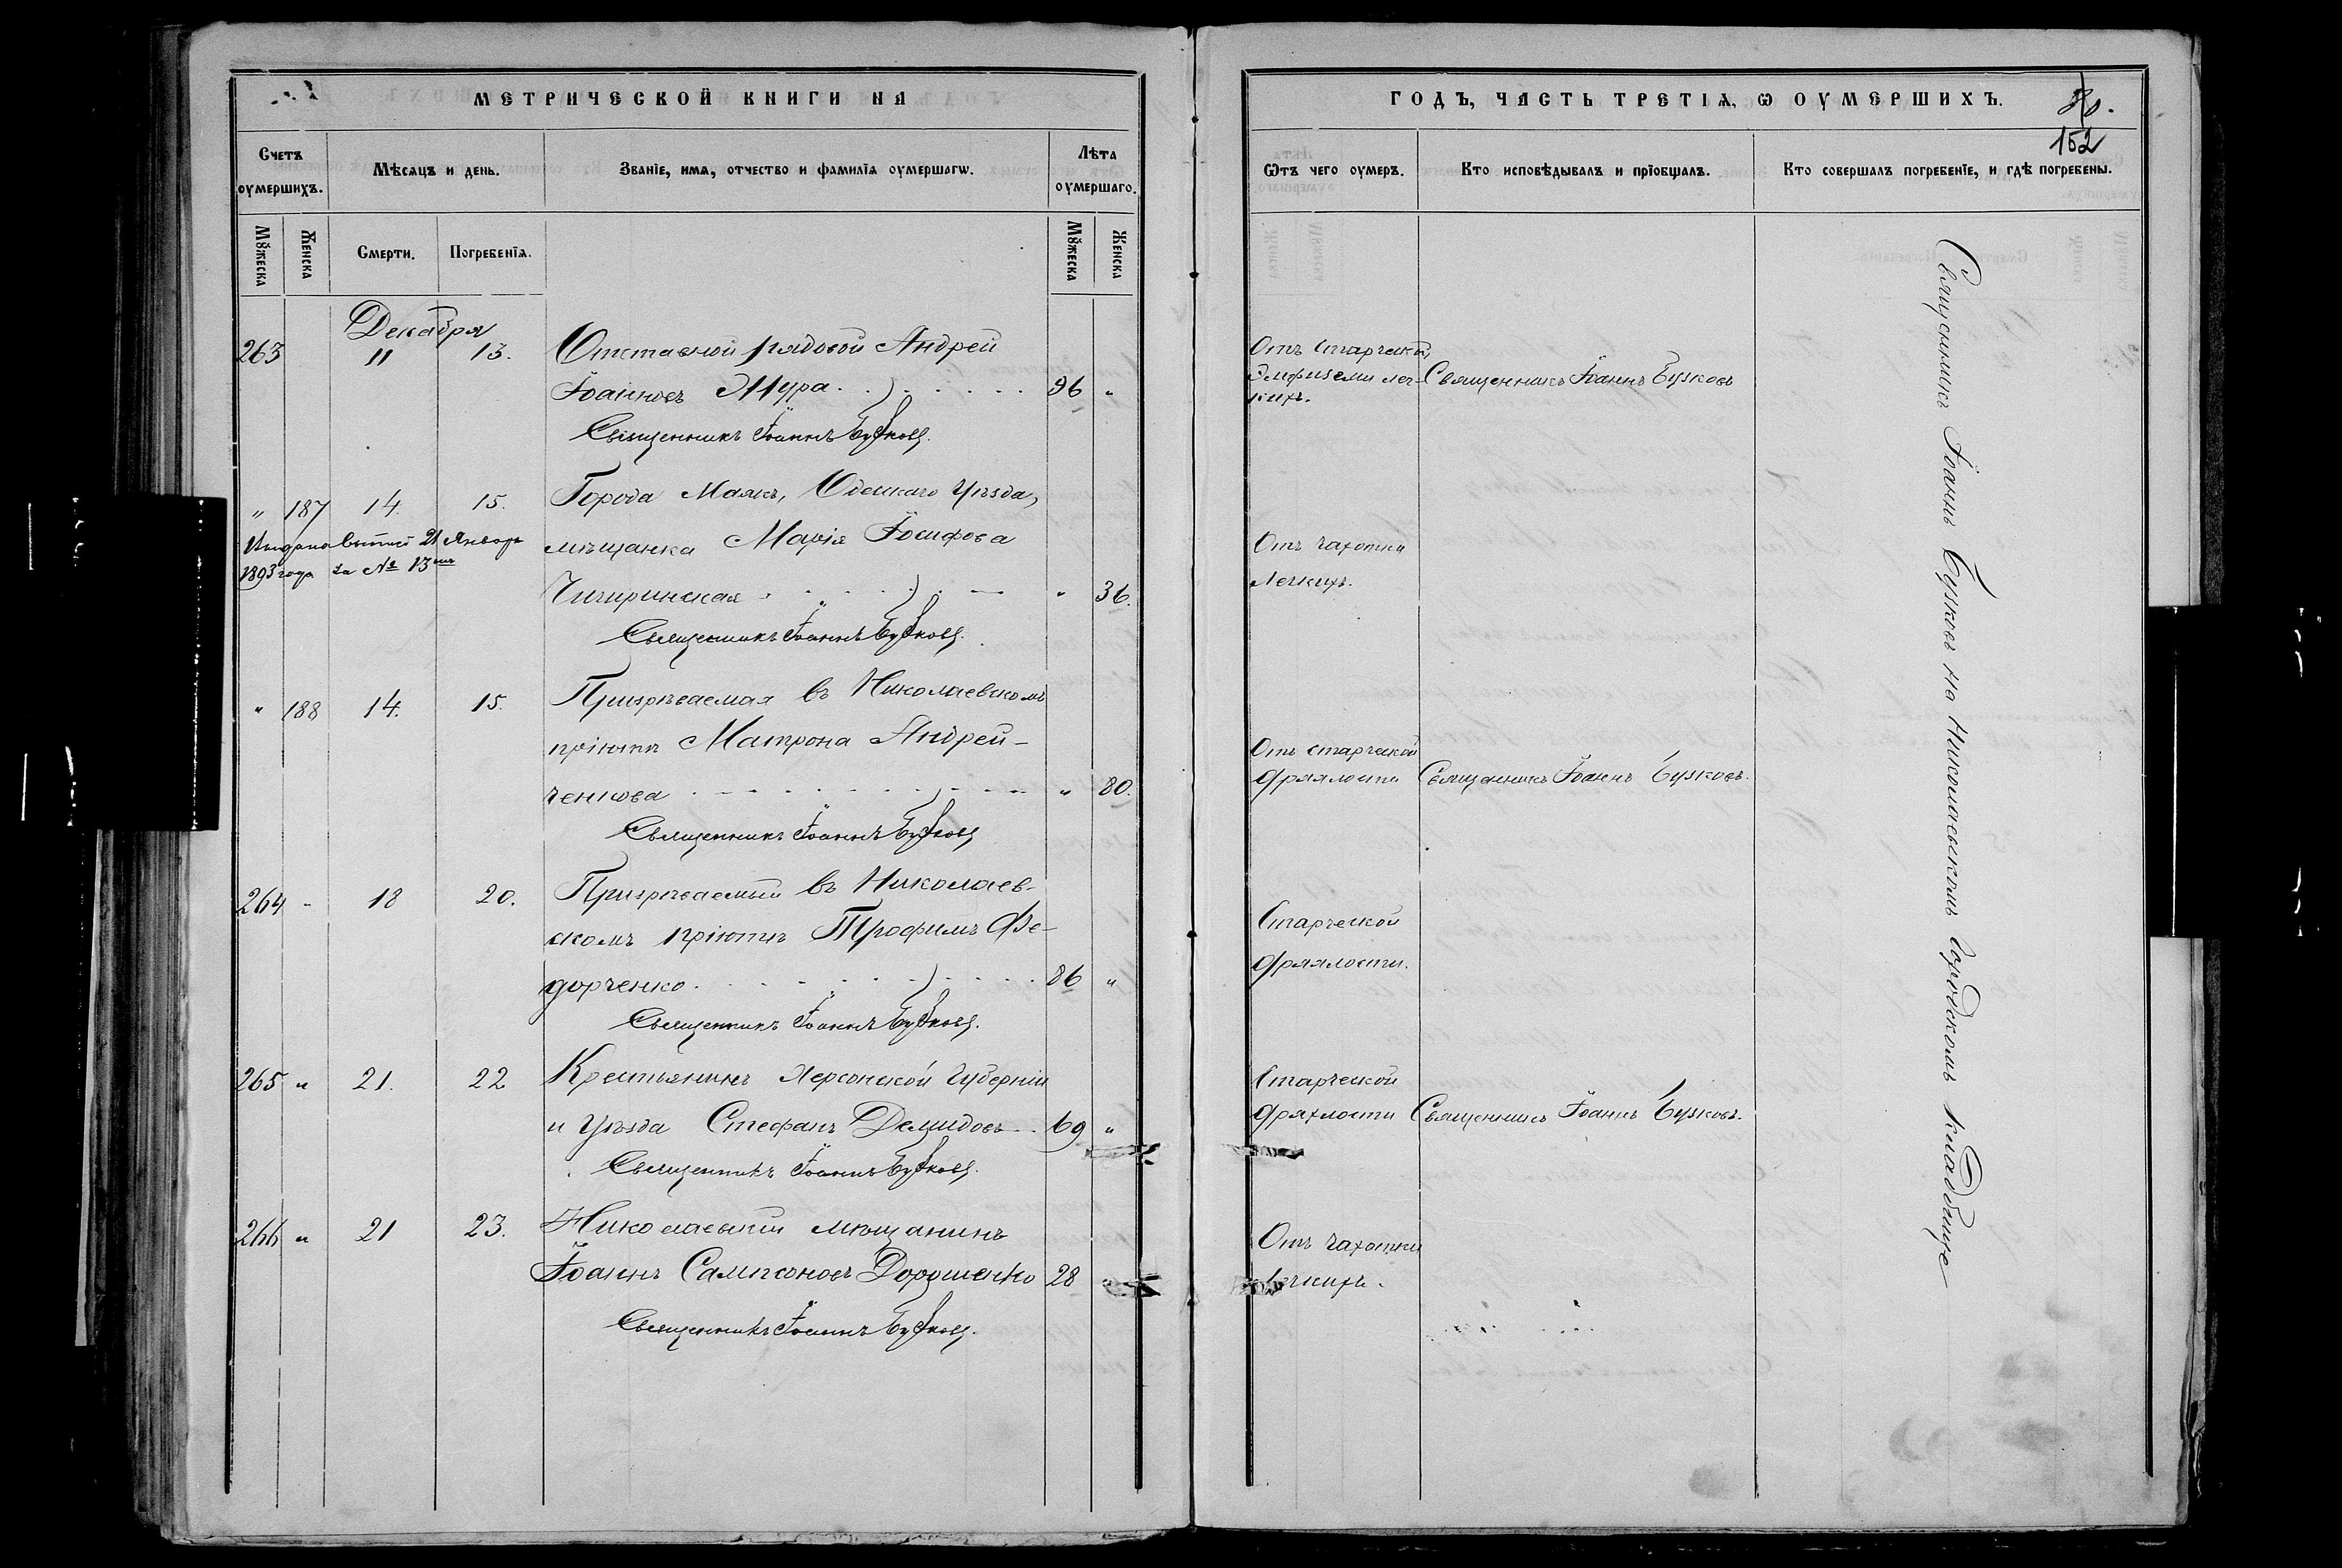 МЕТРИЧЕСКОЙ КНИГИ НА
Счетъ оумершихъ.
Мѣсяцъ и день.
Званіе, имя, отчество и фамилія оумершагѡ.
Лѣта оумершаго.
Мꙋжеска
Женска
Смерти.
Погребенія.
Мꙋжеска
Женска
Декабря
263 11 13. Отставной рядовой Андрей
Іоанновъ Мура 96 "
Священникъ Іоаннъ Бузковъ.
" 187 14. 15. Города Маякъ, Одесскаго Уѣзда,
мѣщанка Марія Іосифова
21 Январь
1893 года за № 13
Чигиринская " 36.
Священникъ Іоаннъ Бузковъ.
" 188 14. 15. Призрѣваемая въ Николаевскомъ
пріютѣ Матрона Андрей-
ченкова " 80.
Священникъ Іоаннъ Бузковъ
264 " 18 20. Призрѣваемый въ Николаев-
скомъ пріютѣ Трофимъ Фе-
дорченко 86 "
Священникъ Іоаннъ Бузковъ.
265 " 21. 22 Крестьянинъ Херсонской Губерніи
и Уѣзда Стефанъ Демидовъ 69 "
Священникъ Іоаннъ Бузковъ.
266 " 21 23. Николаевскій мѣщанинъ
Іоаннъ Сампсоновъ Дорошенко 28 "
Священникъ Іоаннъ Бузковъ.
ГОДЪ, ЧАСТЬ ТРЕТІЯ, Ѡ ОУМЕРШИХЪ.
152
Ѿтъ чего оумеръ.
Кто исповѣдывалъ и пріобщалъ.
Кто совершалъ погребеніе, и гдѣ погребены.
Отъ старческой
Эмфиземы лег- Священникъ Іоаннъ Бузковъ
кихъ.
Отъ чахотки
легкихъ.
Отъ старческой
дряхлости Священникъ Іоаннъ Бузковъ.
Старческой
дряхлости.
Старческой
дряхлости Священникъ Іоаннъ Бузковъ.
Отъ чахотки
легкихъ.
Священникъ Іоаннъ Бузковъ на Николаевскомъ городскомъ кладбище